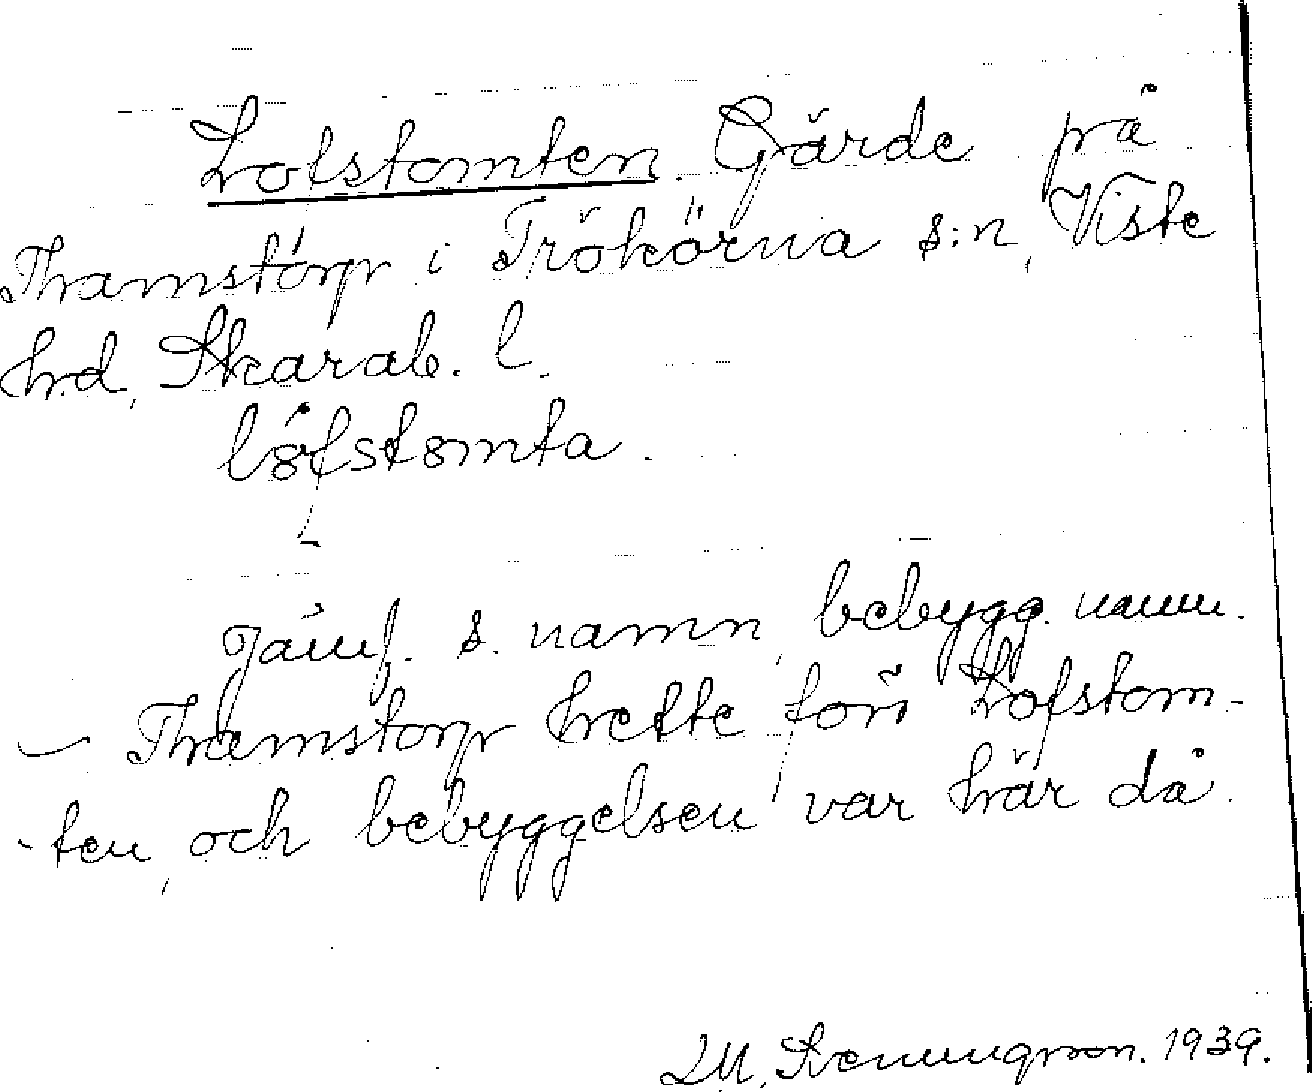 Lofstomten. Gärde på
Thamstorp i Trökörna s:n, Viste
hrd, Skarab. l.
lófstomta.
Jämf. s. namn, bebygg. namn.
- Thamstorp hette förr Lofstom-
-ten, och bebyggelsen var här då.
1939.